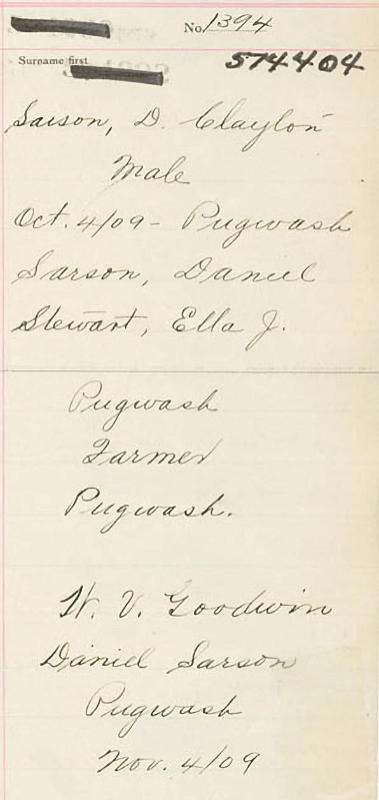 No. 1394
Surname first
574404
Sarson, D. Clayton
Male
Oct. 4/09 - Pugwash
Sarson, Daniel
Stewart, Ella J.
Pugwash
Farmer
Pugwash.
W. V. Goodwin
Daniel Sarson
Pugwash
Nov. 4/09